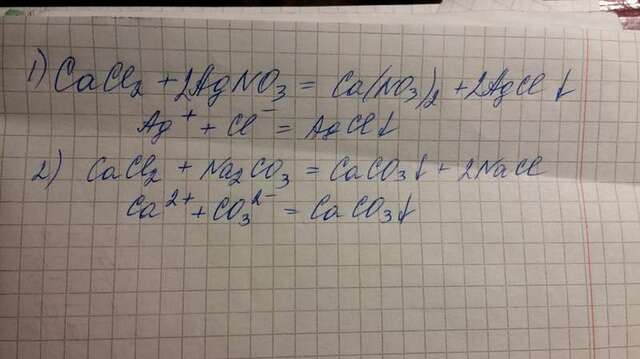 1) CaCl₂ + 2AgNO₃ = Ca(NO₃)₂ + 2AgCl↓
Ag⁺ + Cl⁻ = AgCl↓
2) CaCl₂ + Na₂CO₃ = CaCO₃↓ + 2NaCl
Ca²⁺ + CO₃²⁻ = CaCO₃↓